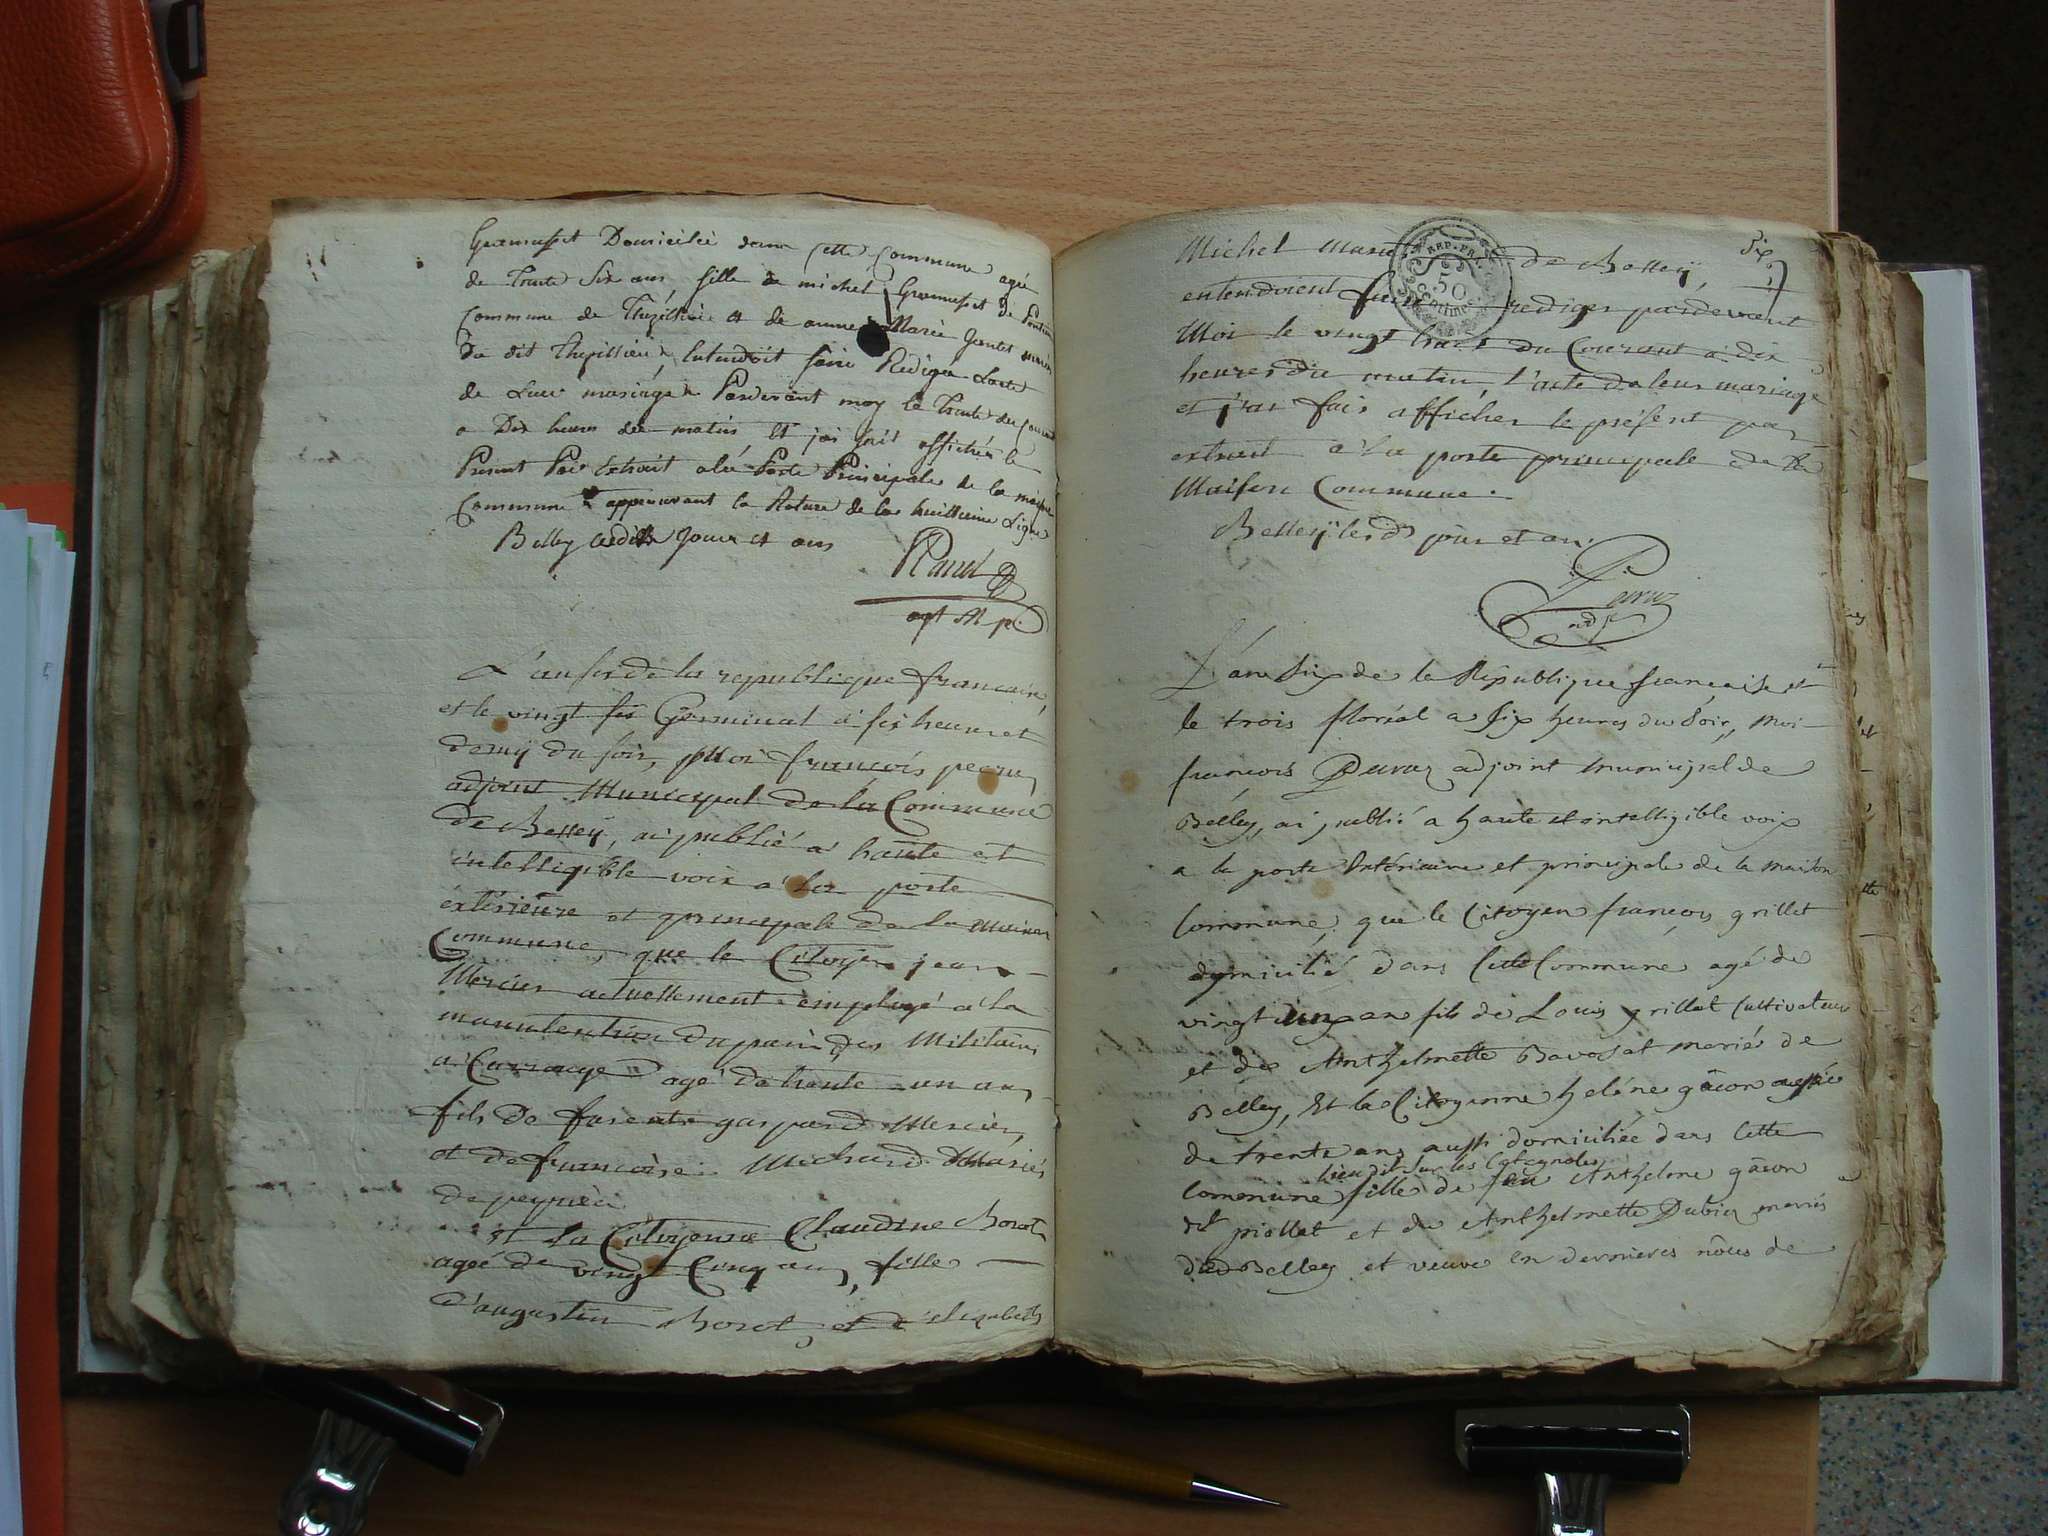 Domicilié dans cette Commune agée
de Trente Six ans, fille de michel de
Commune de et de anne Marie
du dit entendoit faire Rédiger Lacte
de Leur mariage Pardevant moy le Trente du Courant
a Dix heures du matin, Et jai fait affiché le
Present Par Extrait a la Porte Principale de la maison
Commune approuvant la Rature de la huitieme Ligne
Belley lesdits Jour et ans
agt Mpal
L'an six de la republique francaise,
et le vingt six Germinal a six heures et
demÿ du soir, moi françois peyruz
adjoint Municipal de la Commune
de Belleÿ, ai publié a haute et
intelligible voix a la porte
éxtérieure et principale de la Maison
Commune, que le Citoyen jean
Mercier actuellement emploÿé a la
manutention du pain des Militaires
a agé de trente un ans
fils de gaspard Mercier,
et de francoise Michard Mariés
de
et La Citoyenne Claudine Borot
agée de vingt Cinq ans, fille
d'augustin Borot, et d'elizabeth
Six
Michel Mariés de Belleÿ,
entendoient faire rediger pardevant
Moi le vingt huit du Courant a dix
heures du matin, l'acte de leur mariage
et j'ai fais afficher le présent par
extrait a la porte principale de la
Maison Commune.
Belleÿ les d. jour et an.
REP. FRA.
50
Centimes
Peyruz
adjt
L'an Six de la République française et
le trois floréal a Six heures du Soir, moi
françois Peyruz adjoint municipal de
Belley, ai publié a haute et intelligible voix
a la porte Extérieure et principale de la maison
Commune, que le Citoyen françois grillet
domicilié dans Cette Commune agé de
vingt un an fils de Louis grillet Cultivateur
et de Anthelmette Bavosat mariés de
Belley, Et la Citoyenne heléne gâcon agée
de trente ans aussi domiciliée dans Cette
lieu dit Sur les
Commune fille de feu Anthelme gâcon
dit piollet et de Anthelmette Dubiez mariés
dud Belley et veuve en dernieres nôces de